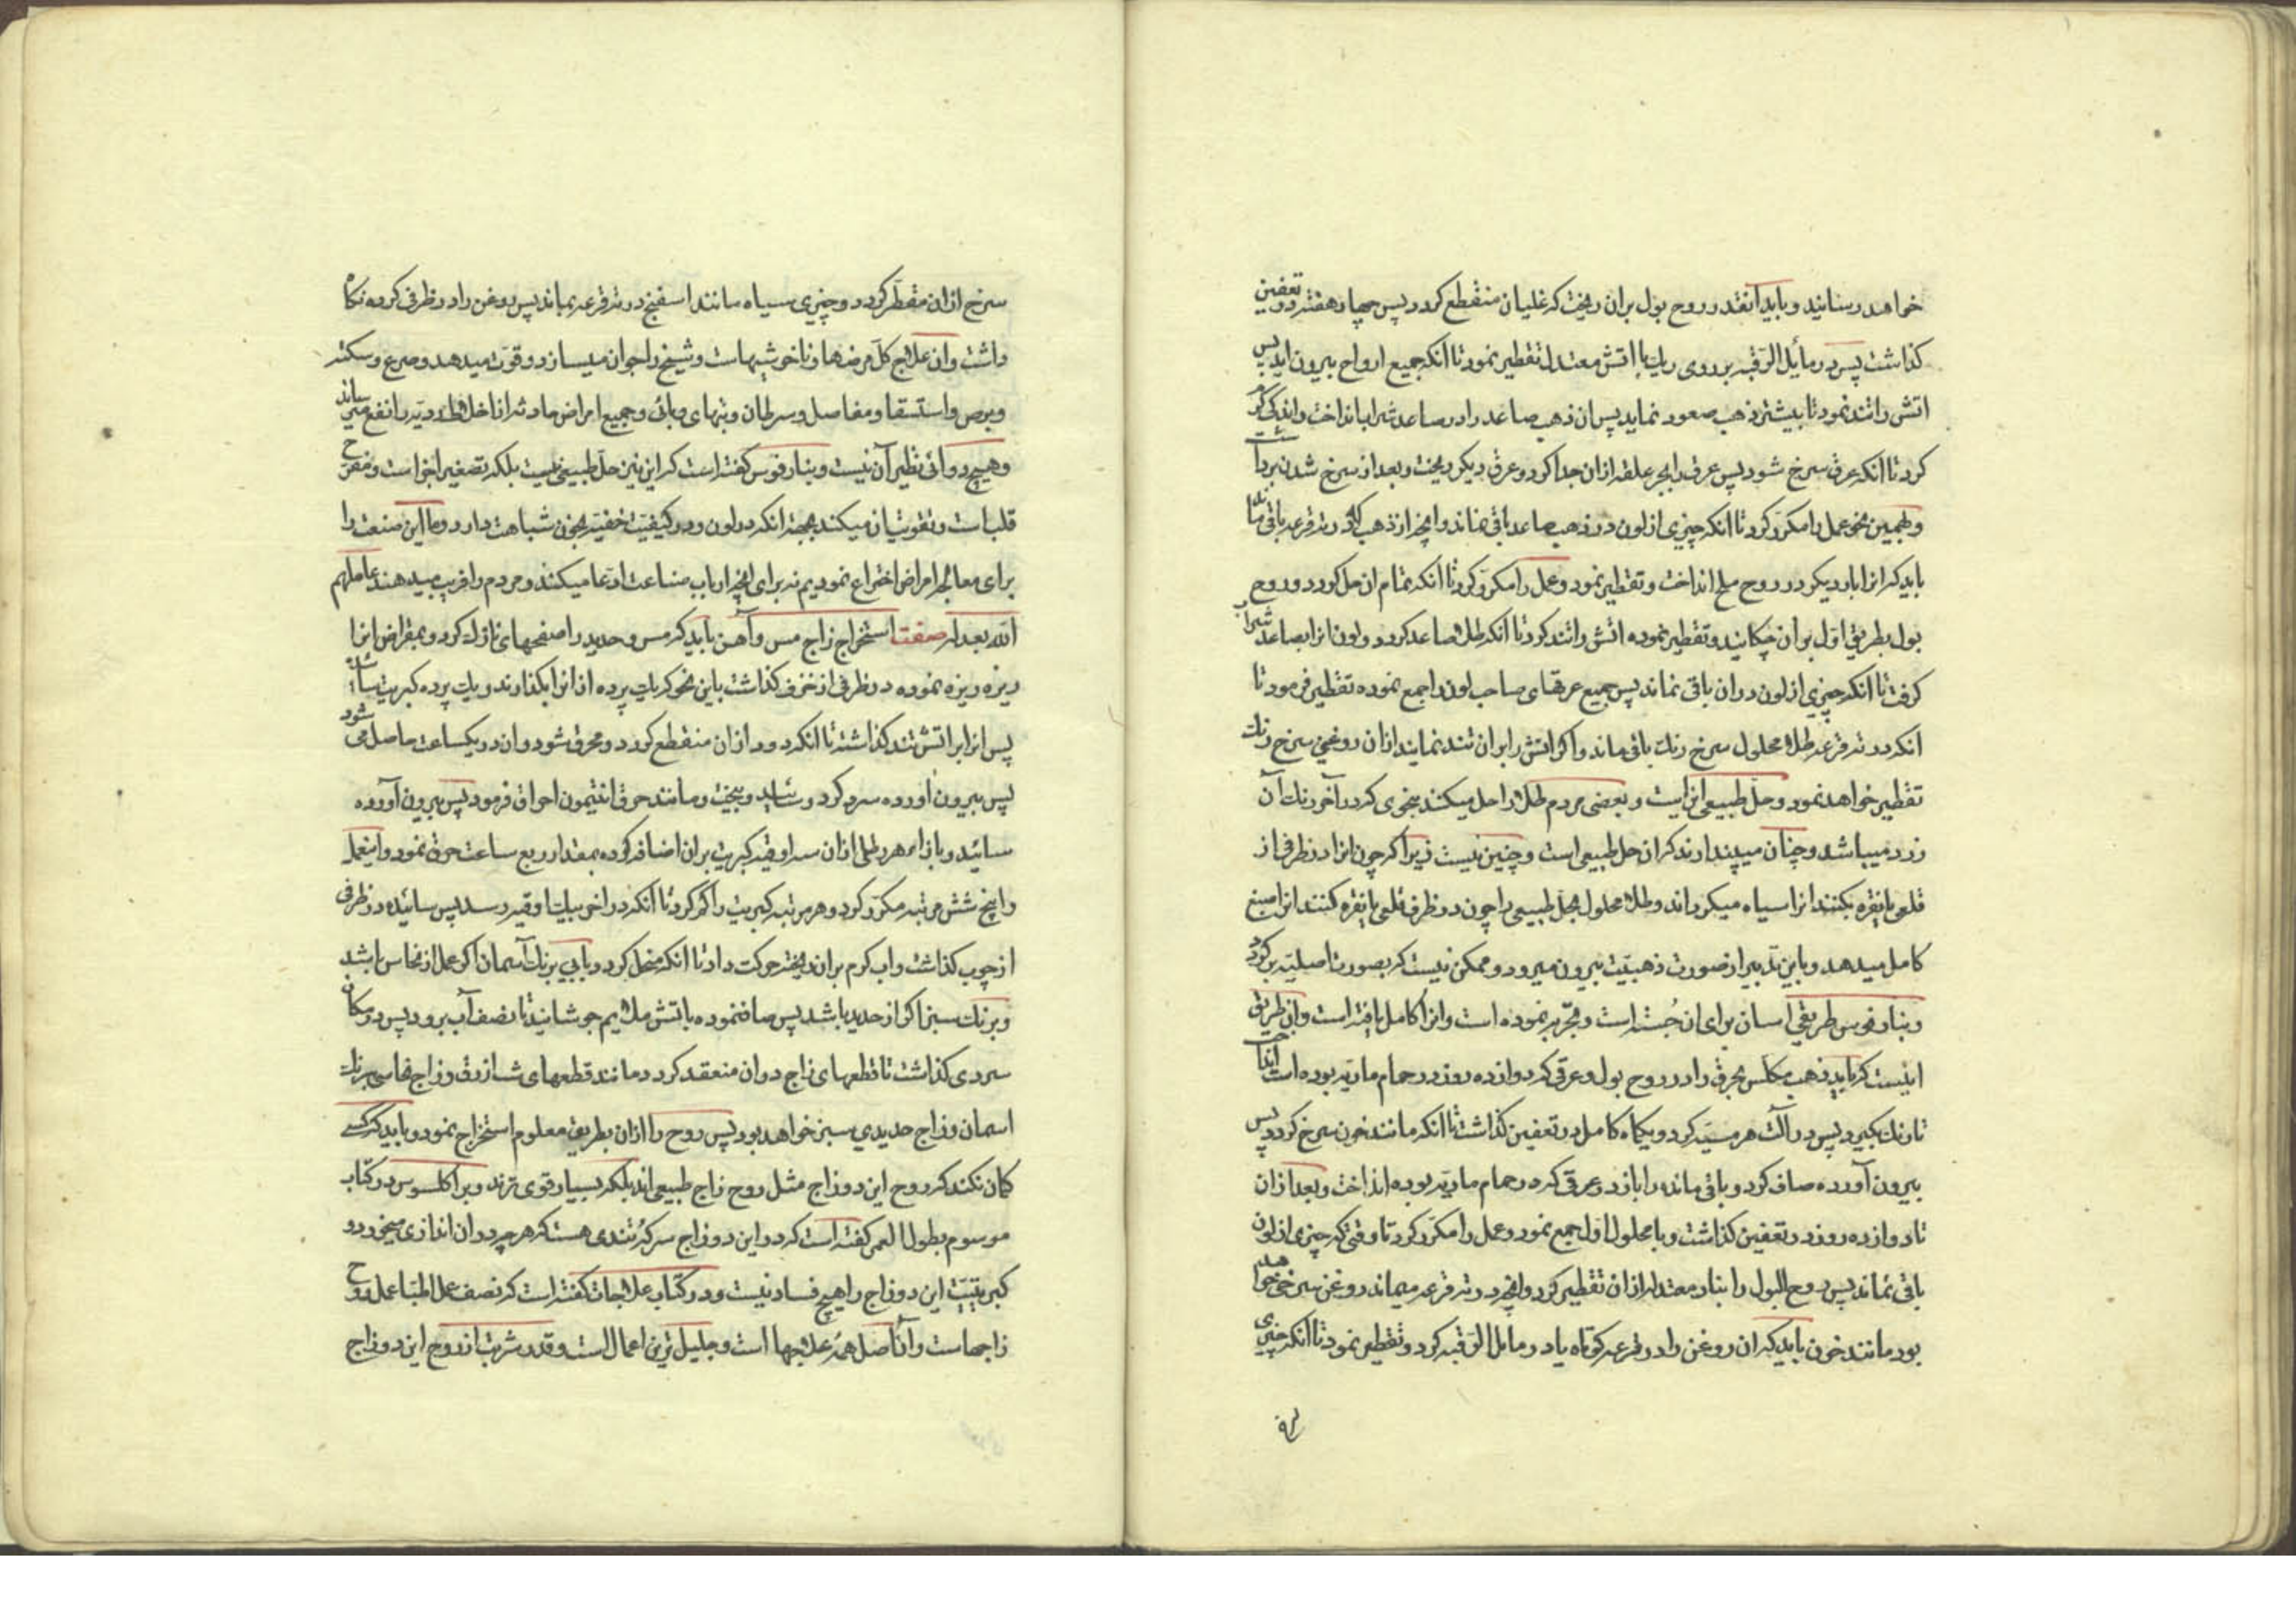 خواهد رسانید و باید آنقدر روح بول بران ریخت که غلیان منقطع کردد پس چهار هفته در تعفین
کذاشت پس در مائل الرقبه بر روی ریك با اتش معتدل تقطیر نمود تا انکه جمیع ارواح بیرون اید پس
اتش را تند نمود تا بیشتر ذهب صعود نماید پس ان ذهب صاعد را در صاعد شراب انداخت و اندکی کرم
کرد تا انکه عرق سرخ شود پس عرق را بجر علقه ازان جدا کرد و عرق دیکر ریخت و بعد از سرخ شدن برداشت
و همین نحو عمل را مکرر کرد تا انکه چیزی از لون در ذهب صاعد باقی نماند و انچه از ذهب که در ته قرعه باقی ماند
باید که انرا بار دیکر در روح ملح انداخت و تقطیر نمود و عمل را مکرر کرد تا انکه تمام ان حل کردد و روح
بول بطریق اول بر ان چکانید و تقطیر نموده اتش را تند کرد تا انکه طلا صاعد کردد و لون انرا بصاعد شراب
کرفت تا انکه چیزی از لون دران باقی نماند پس جمیع عرقهای صاحب لون را جمع نموده تقطیر فرمود تا
انکه در ته قرعه طلاء محلول سرخ رنك باقی ماند و اکر اتش را بران تند نمایند ازان روغنی سرخ رنك
تقطیر خواهد نمود و حل طبیعی انرا است و بعضی مردم طلا را حل میکنند بنحوی که در آخر رنك آن
زرد میباشد و چنان میپندارند که ان حل طبیعی است و چنین نیست زیرا که چون انرا در ظرفی از
قلعی یا نقره بکنند انرا سیاه میکرداند و طلاء محلول بحل طبیعی را چون در ظرف قلعی یا نقره کنند انرا صبغ
کامل میدهد و باین تدبیر از صورت ذهبیّت بیرون میرود و ممکن نیست که بصورت اصلیه بر کردد
و بنارفوس طریقی اسان برای ان جُسته است و تجربه نموده است و انرا کامل یافته است و ان طریق
اینست که باید ذهب مکلس بحرق را در روح بول و عرقی که دوازده روز در حمام ماریه بوده است انداخت
تا رنك بکیرد پس در آلت هرمسیه کرد و یکماه کامل در تعفین کذاشت تا انکه مانند خون سرخ کردد پس
بیرون آورده صاف کرد و باقی مانده را باز در عرقی که در حمام ماریه بوده انداخت و بعد ازان
تا دوازده روز در تعفین کذاشت و با محلول اول جمع نمود و عمل را مکرر کرد تا وقتی که چیزی از لون
باقی نماند پس روح البول را بنار معتدل ازان تقطیر کرد و انچه در ته قرعه میماند روغن سرخی خواهد
بود مانند خون باید که ان روغن را در قرعه کوتاه یا در مائل الرقبه کرد و تقطیر نمود تا انکه چیزی
سرخ ازان متقطر کردد و چیزی سیاه مانند اسفنج در ته قرعه بماند پس روغن را در ظرفی کرده نکاه
داشت و ان علاج کل مرضها و ناخوشیها است و شیخ را جوان میسازد و قوت میدهد و صرع و سکته
و برص و استسقا و مفاصل و سرطان و تبهای وبائی و جمیع امراض حادثه از اخلاط ردیه را نفع میرساند
و هیچ دوائی نظیر آن نیست و بنارفوس کفته است که این نیز حل طبیعی نیست بلکه تصغیر اجزا است و مفرح
قلبات و تقویت ان میکند بجهة انکه در لون و در کیفیت خفیه بخون شباهت دارد و ما این صنعت را
برای معالجه امراض اختراع نمودیم نه برای انچه ارباب صناعت ادعا میکنند و مردم را فریب میدهند عاملهم
الله بعدله صفت استخراج زاج مس و آهن باید که مس و حدید را صفحهای نازك کرد و بمقراض انرا
ریزه ریزه نموده در ظرفی از خزف کذاشت باین نحو که یك پرده از انرا بکذارند و یك پرده کبریت سائیده
پس انرا بر اتش تند کذاشته تا انکه دود ازان منقطع کردد و محرق شود و ان در یکساعت حاصل می شود
پس بیرون آورده سرد کرد و سائید و بیخت و مانند حرق انتیمون احراق فرمود پس بیرون آورده
سائید و بازاء هر رطلی ازان سه اوقیه کبریت بران اضافه کرده بمقدار ربع ساعت حرق نمود و اینعمل
را پنج شش مرتبه مکرر کرد و هر مرتبه کبریت را کم کرد تا انکه در اخر بیك اوقیه رسد پس سائیده در ظرفی
از چوب کذاشت و اب کرم بران ریخته حرکت داد تا انکه منحل کردد بابی برنك آسمان اکر عمل از نحاس باشد
و برنك سبز اکر از حدید باشد پس صاف نموده باتش ملایم جوشانید تا نصف آب برود پس در مکان
سردی کذاشت تا قطعهای زاج دران منعقد کردد مانند قطعهای شب ازرق و زاج نحاسی برنك
اسمان و زاج حدیدی سبز خواهد بود پس روح را ازان بطریق معلوم استخراج نمود و باید که کسی
کمان نکند که روح این دو زاج مثل روح زاج طبیعی اند بلکه بسیار قوی ترند و براکلسوس در کتاب
موسوم بطول العمر کفته است که در این دو زاج سرکه تندی هست که هر چه دران اندازی میخورد و
کبریتیت این دو زاج را هیچ فساد نیست و در کتاب علاجات کفته است که نصف عمل اطبا عمل روح
زاجهاست و آن اصل همه علاجها است و جلیل ترین اعمال است و قدر شربت از روح این دو زاج